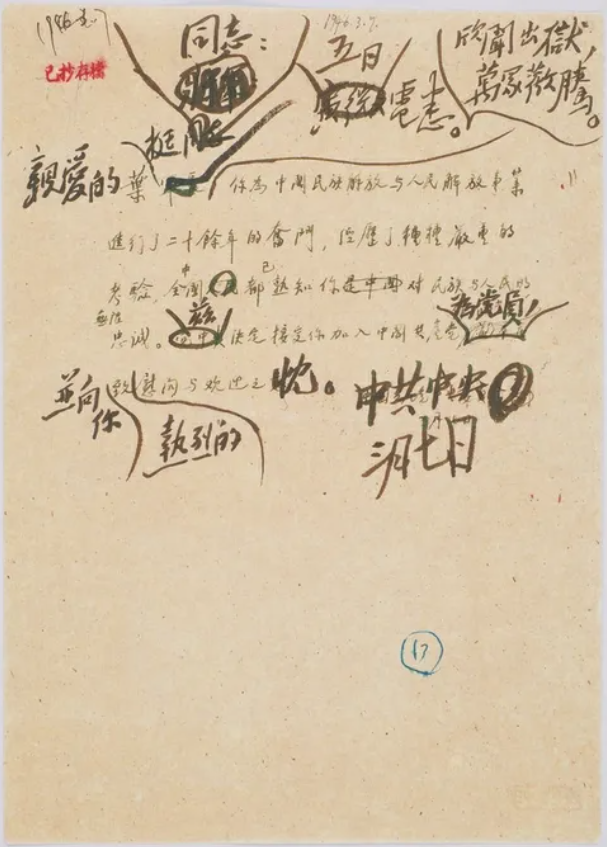 1946.3.7.
已抄存檔
同志：
五日
電悉。
欣聞出獄，
萬眾歡騰。
挺同志
親愛的葉
你為中國民族解放与人民解放事業
進行了二十餘年的奮鬥，經歷了種種嚴重的
中 已
考驗，全國人民都熟知你是中國對民族与人民的
無限
忠誠。兹決定接受你加入中國共產黨，為黨員，
並向你
致慰问与欢迎之忱。
熱烈的
中共中央
三月七日
17